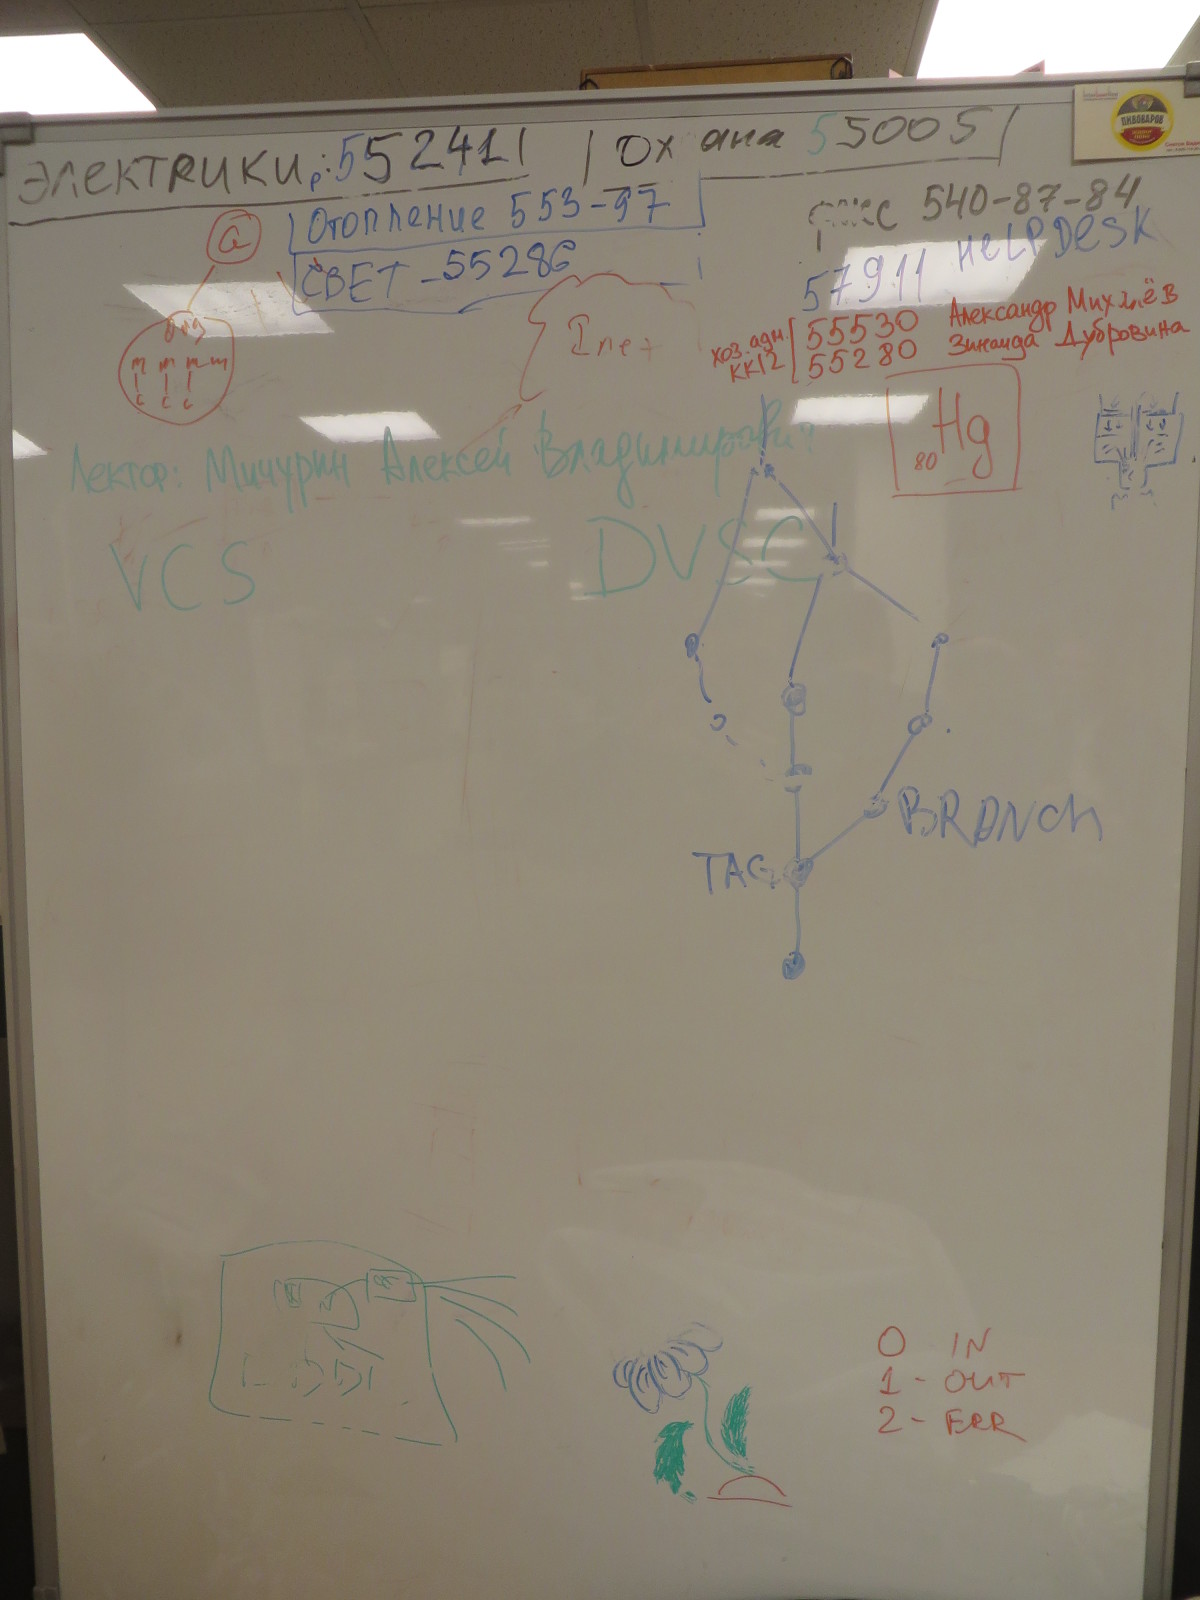 ЭЛЕКТРИКИ р: 552411 | Охрана 55005 |
ПИВОВАРОВ
a
Отопление 553-97
СВЕТ - 55286
факс 540-87-84
57911 HELPDESK
хоз. адм. 55530 Александр Михалёв
КК12 55280 Зинаида Дубровина
m m m m
c c c
Inet
80 Hg
Лектор: Мичурин Алексей Владимирович
VCS DVSC
BRANCH
TAG
0 IN
1 - OUT
2 - ERR